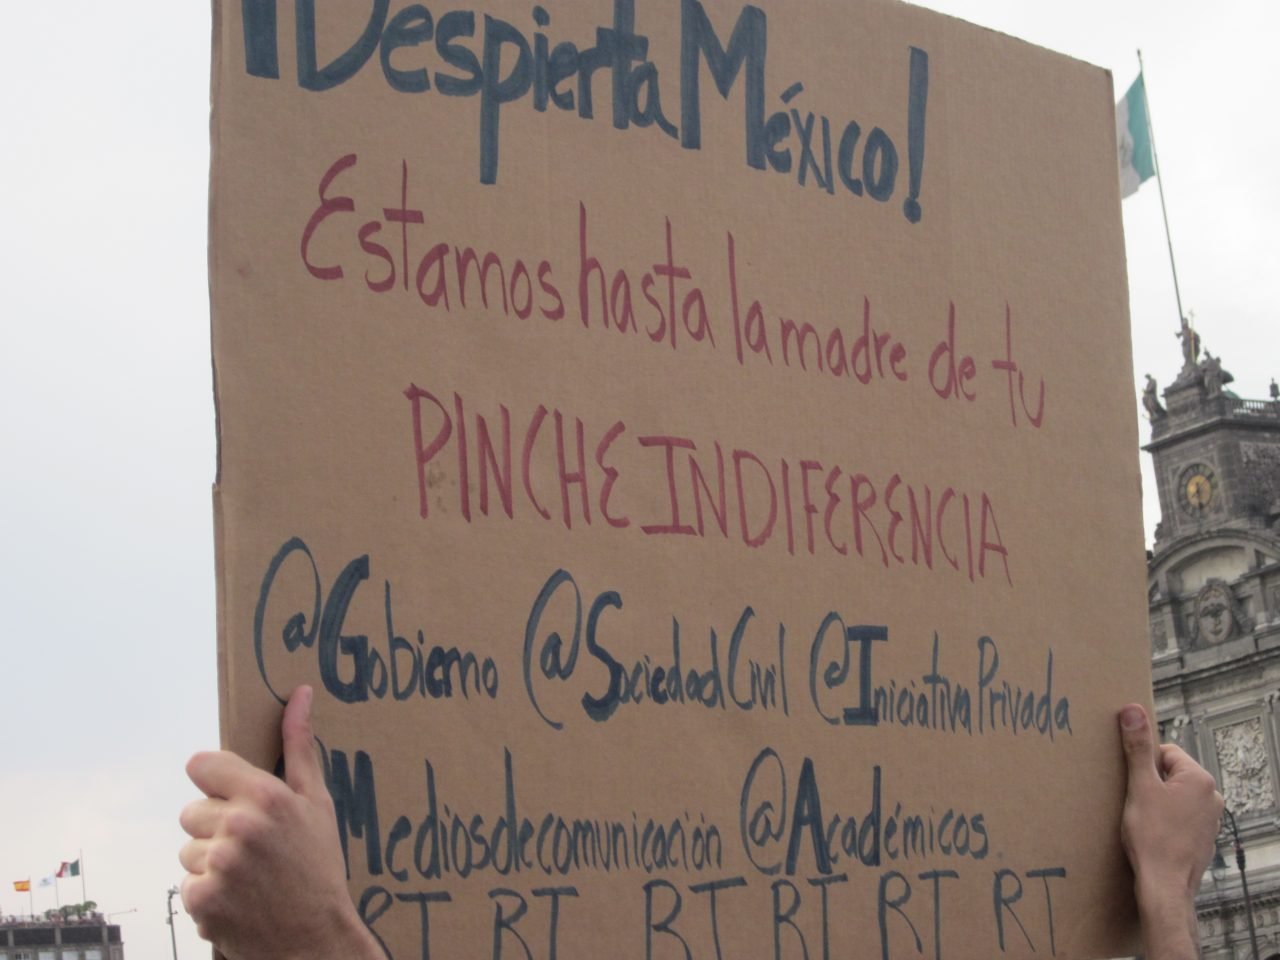 ¡Despierta México!
Estamos hasta la madre de tu
PINCHE INDIFERENCIA
@Gobierno @SociedadCivil @IniciativaPrivada
@Mediosdecomunicación @Académicos.
RT RT RT RT RT RT